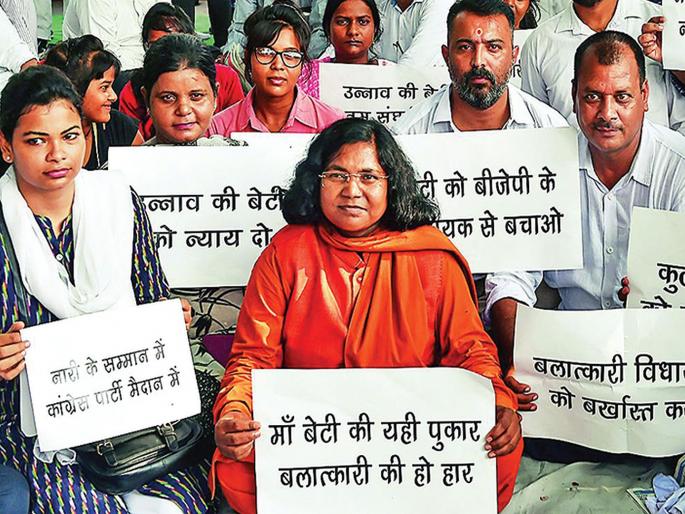 उन्नाव की बे
उन्नाव की बेटी
को न्याय दो
को बीजेपी के
से बचाओ
नारी के सम्मान में
कांग्रेस पार्टी मैदान में
माँ बेटी की यही पुकार
बलात्कारी की हो हार
बलात्कारी विधा
को बर्खास्त क